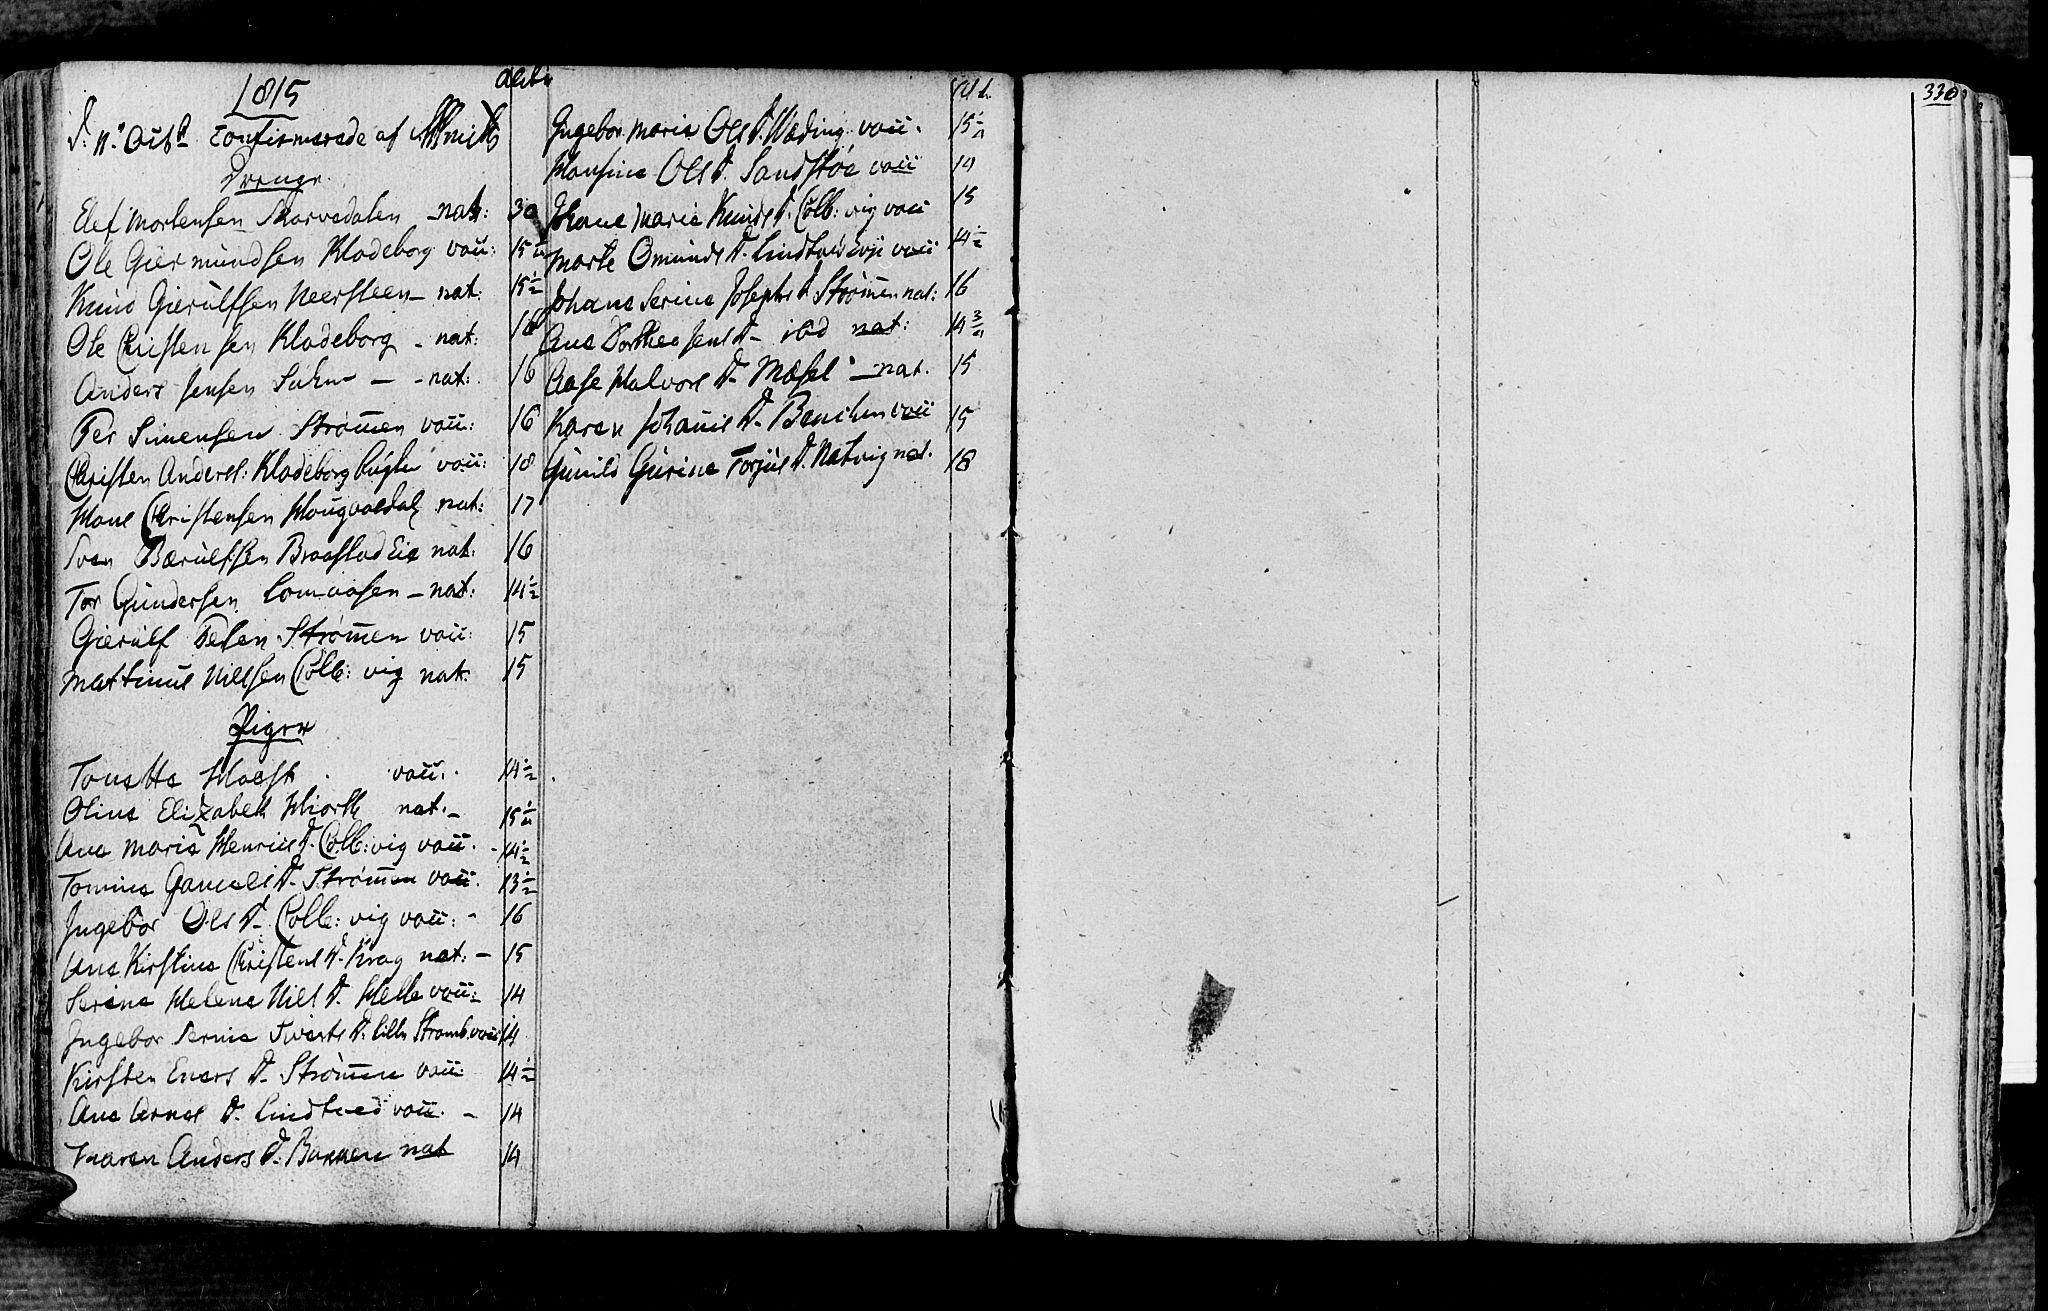 1815
d. 1te Oct. Confirmerede af HSmith
Drenge
Elef Mortensen Skarvedalen nat: 30
Ole Giermundsen Klodeborg vac: 15
Knud Gierulfsen Neersteen nat: 15½
Ole Christensen Klodeborg nat: 18
Anders Jensen nat: 16
Per Simensen Strømmen vac: 16
Christen Anders: Klodeborg vac: 18
Hans Christensen nat: 17
Sven Bærulfsen Braastad Eie nat: 16
Tor Gundersen Lomaasen nat: 14½
Gierulf Strømmen vac: 15
Mattinus Nielsen Colb: vig nat. 15
Piger
Tonette vac: 14½
Oline Elizabeth Hiorth nat. 15¼
Ane Marie Henrics D. Colb: vig vac. 14½
Tomine D. Strømmen vac. 13½
Ingebor Ols D. Colb: vig vac: 16
Ane Kirstine Christens D. Krag nat: 15
Serine Helene Niels D. Helle vac: 14
Ingebor D. Lille vac: 14
Kirsten Evers D. Strømmen vac: 14½
Ane Arnes D. Lindtved vac. 14
Maren Anders D. Bakken nat 14
Alt.
Ingebor Marie Ols D. vac. 15¼
Mansine Ols D. Sandstøe vac 14
Johane Marie Knuds D. Colb: vig vac 15
Marte Omunds D. vac 14½
Johane Serine Josephs D. Strømmen nat: 16
Ane Dorthea Jens D. ibd nat: 14¾
Aase Halvors D. Mæsel nat. 15
Karen Johanne D. vac 15
Gunild Gurine Torjus D. Natvig nat. 18
330